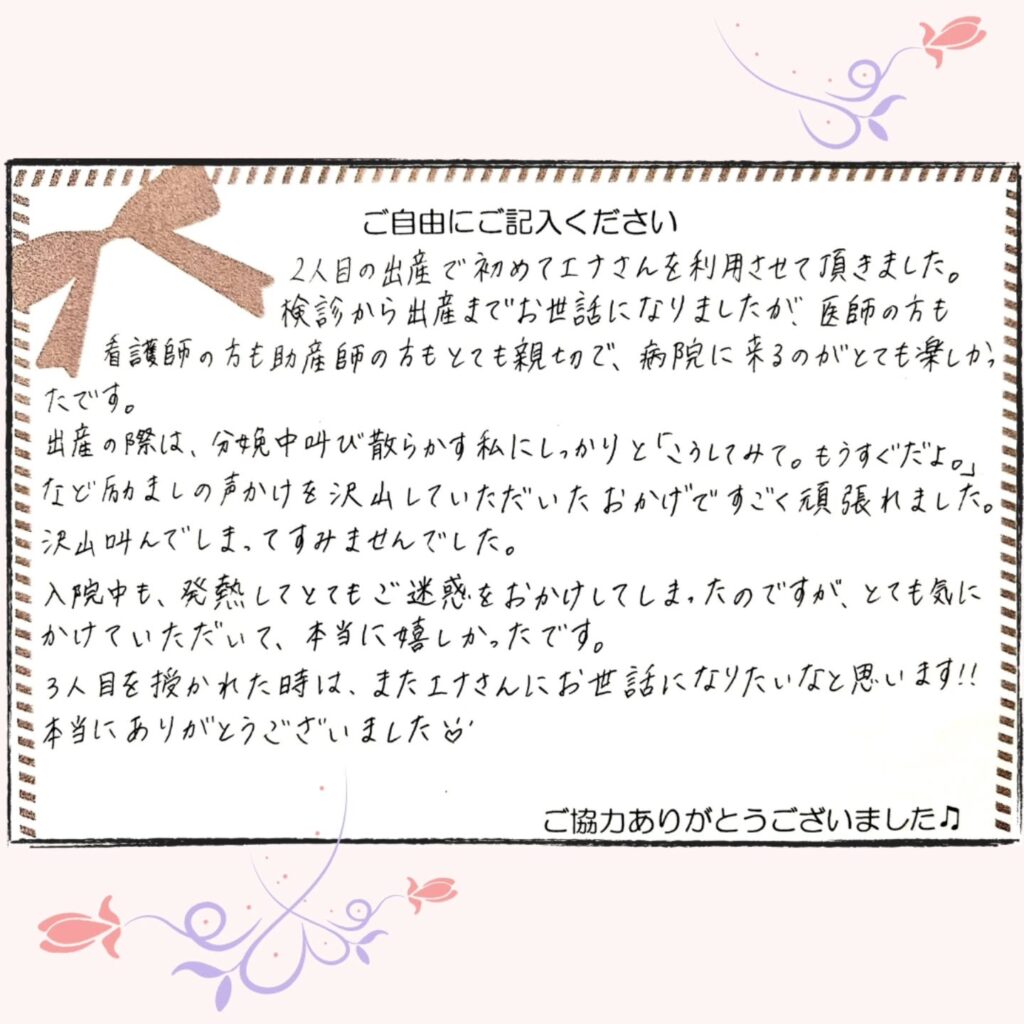 ご自由にご記入ください
2人目の出産で初めてエナさんを利用させて頂きました。
検診から出産までお世話になりましたが、医師の方も
看護師の方も助産師の方もとても親切で、病院に来るのがとても楽しかっ
たです。
出産の際は、分娩中叫び散らかす私にしっかりと「こうしてみて。もうすぐだよ。」
など励ましの声かけを沢山していただいたおかげですごく頑張れました。
沢山叫んでしまってすみませんでした。
入院中も、発熱してとてもご迷惑をおかけしてしまったのですが、とても気に
かけていただいて、本当に嬉しかったです。
3人目を授かれた時は、またエナさんにお世話になりたいなと思います!!
本当にありがとうございました
ご協力ありがとうございました♫